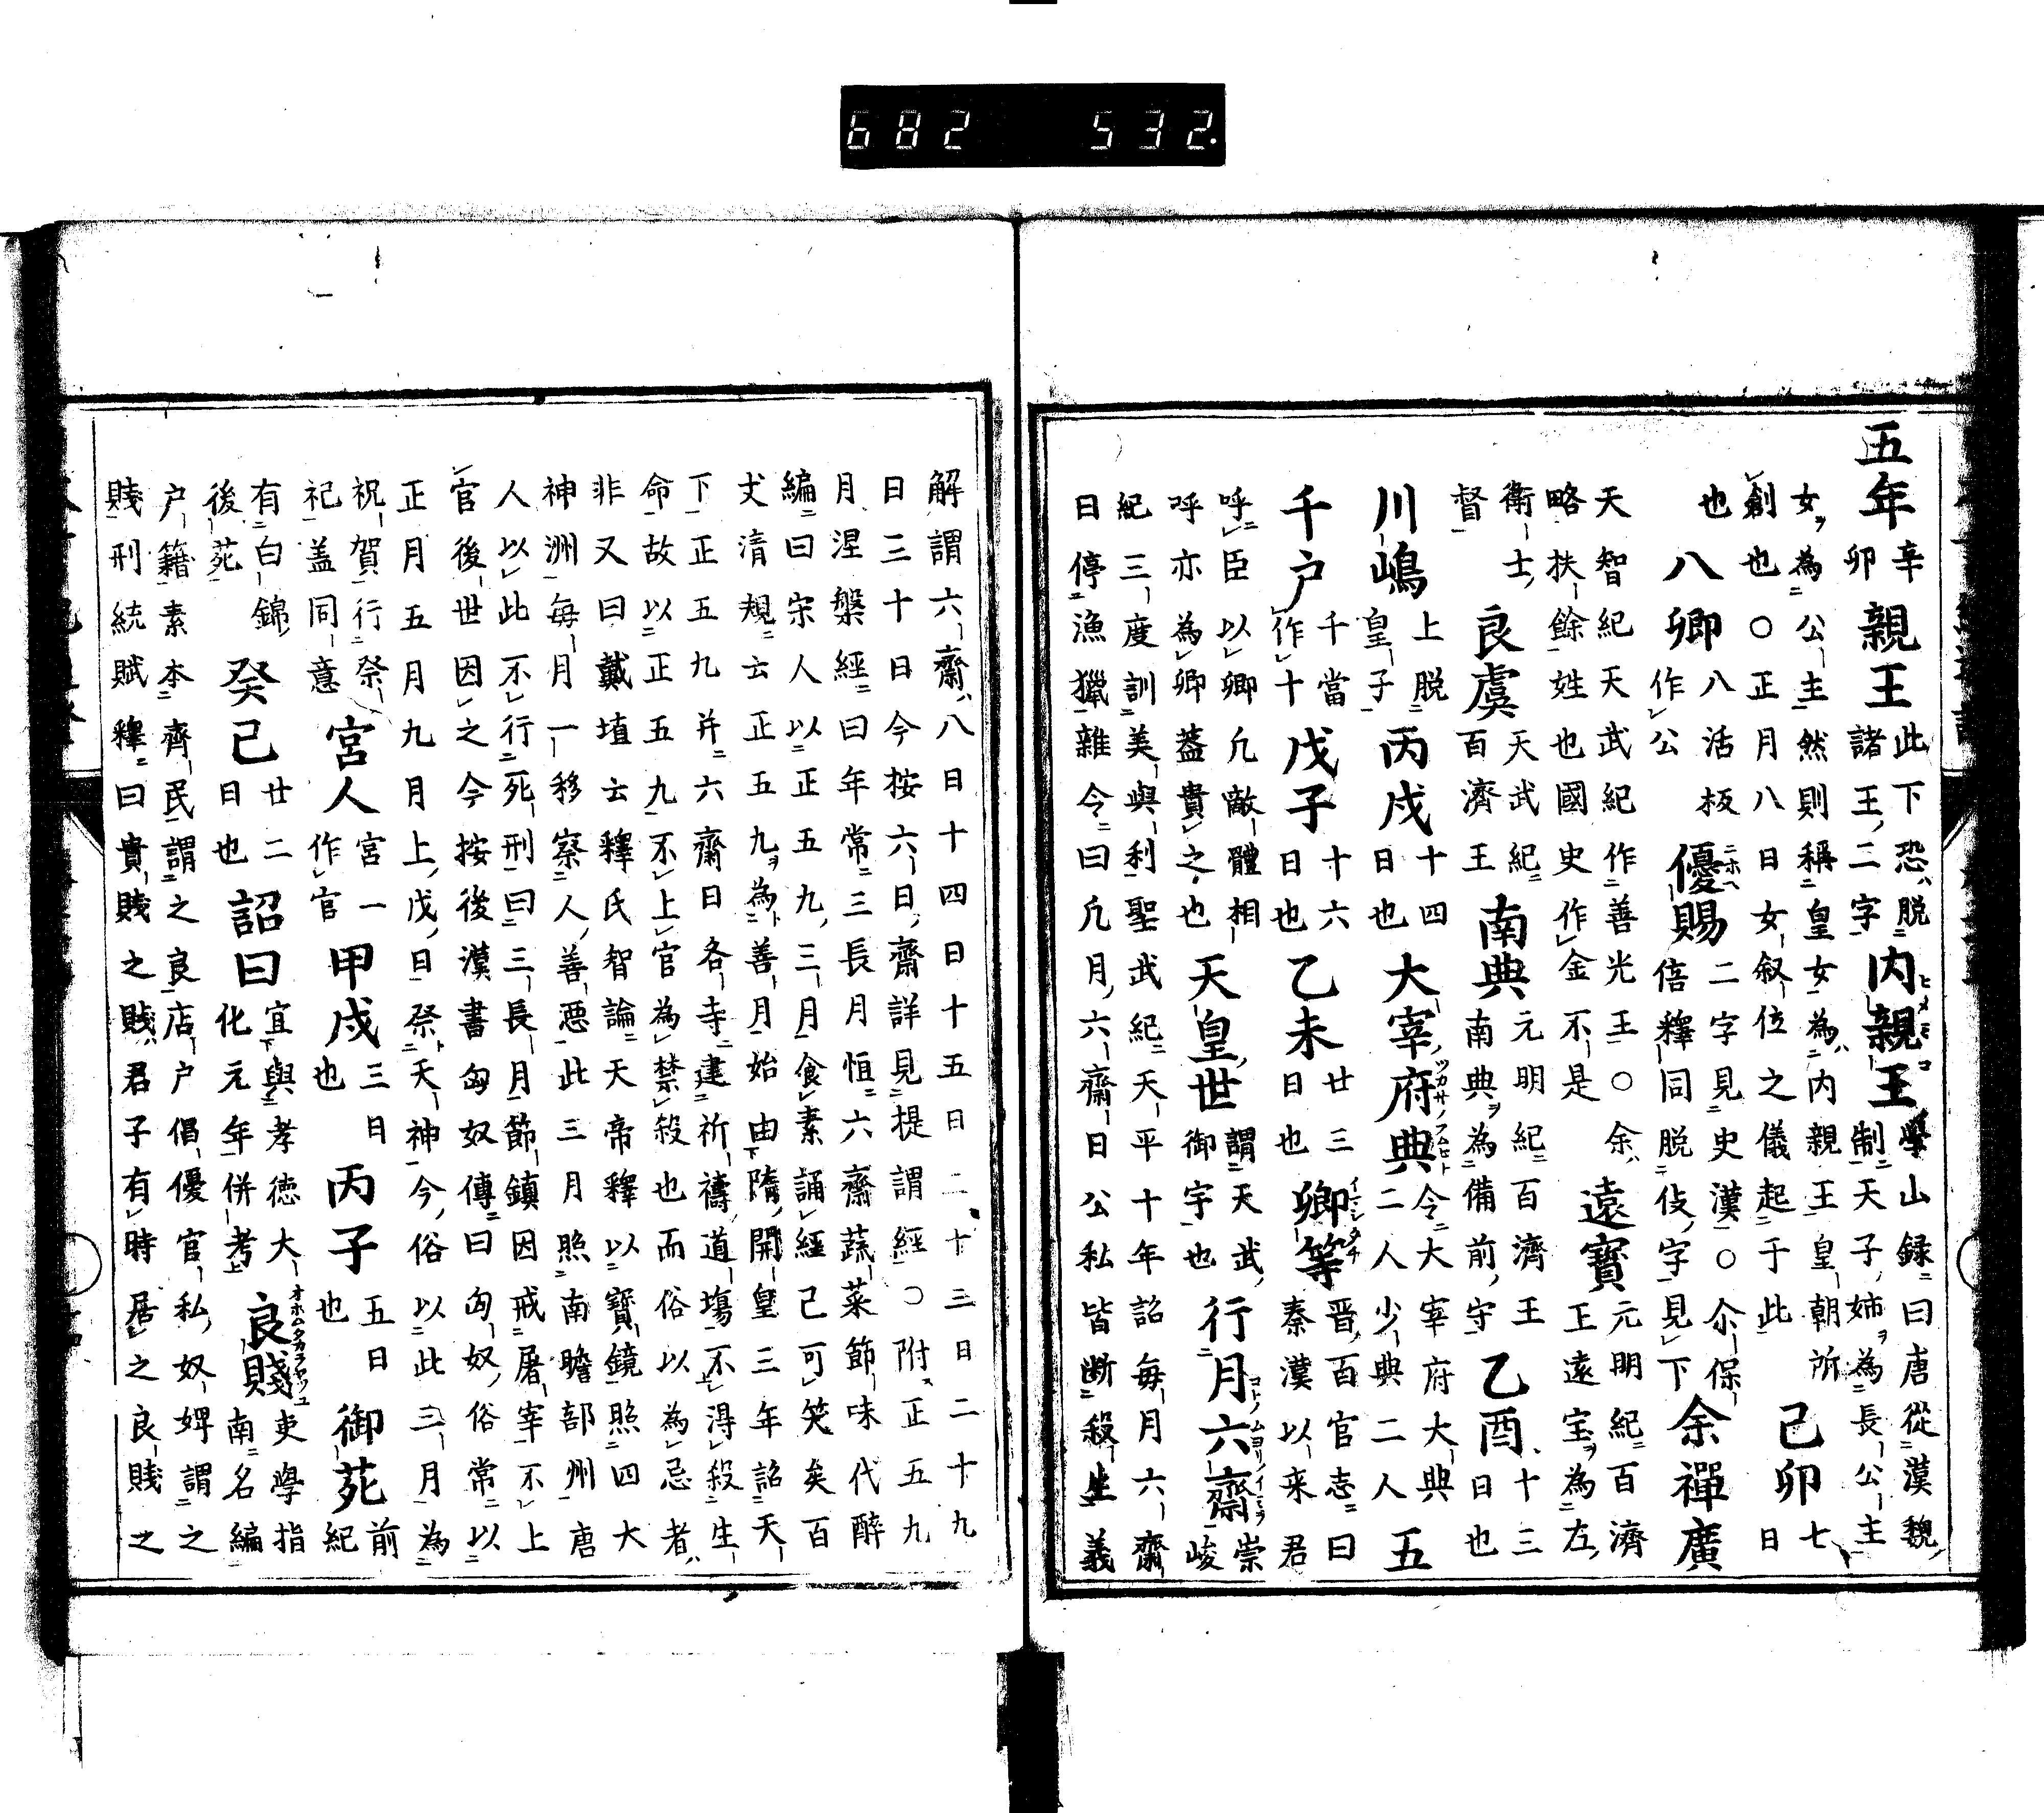 五年
辛
卯
親王
此下恐脱
諸王二字
内親王
學山録曰唐從漢魏
制天子姉為長公主
女為公主然則稱皇女為内親王皇朝所
創也○正月八日女叙位之儀起于此
己卯
七
日
也
八卿
八活板
作公
優賜
二字見史漢○尒保
倍釋同脱伎字見下
余禪廣
天智紀天武紀作善光王○余
略扶餘姓也國史作金不是
遠寶
元明紀百濟
王遠宝為左
衛士
督
良虞
天武紀
百濟王
南典
元明紀百濟王
南典為備前守
乙酉
十三
日也
川嶋
上脱
皇子
丙戌
十四
日也
大宰府典
令大宰府大典
二人少典二人
五
千户
千當
作十
戊子
十六
日也
乙未
廿三
日也
卿等
晋百官志曰
秦漢以来君
呼臣以卿凡敵體相
呼亦為卿蓋貴之也
天皇世
謂天武
御宇也
行月六齋
崇
峻
紀三度訓美與利聖武紀天平十年詔毎月六齋
日停漁獵雜令曰凡月六齋日公私皆断殺生義
解謂六齋八日十四日十五日二十三日二十九
日三十日今按六日齋詳見提謂經○附正五九
月涅槃經曰年常三長月恒六齋蔬菜節味代醉
編曰宋人以正五九三月食素誦經己可笑矣百
丈清規云正五九為善月始由隋開皇三年詔天
下正五九并六齋日各寺建祈禱道塲不得殺生
命故以正五九不上官為禁殺也而俗以為忌者
非又曰戴埴云釋氏智論天帝釋以寶鏡照四大
神洲毎月一移察人善惡此三月照南瞻部州唐
人以此不行死刑曰三長月節鎮因戒屠宰不上
官後世因之今按後漢書匈奴傳曰匈奴俗常以
正月五月九月上戊日祭天神今俗以此三月為
祝賀行祭
祀盖同意
宮人
宮一
作官
甲戌
三日
也
丙子
五日
也
御苑
前
紀
有白錦
後苑
癸巳
廿二
日也
詔曰
宜與孝徳大
化元年併考
良賤
吏學指
南名編
户籍素本齊民謂之良店户倡優官私奴婢謂之
賤刑統賦釋曰貴賤之賤君子有時居之良賤之
682 532.